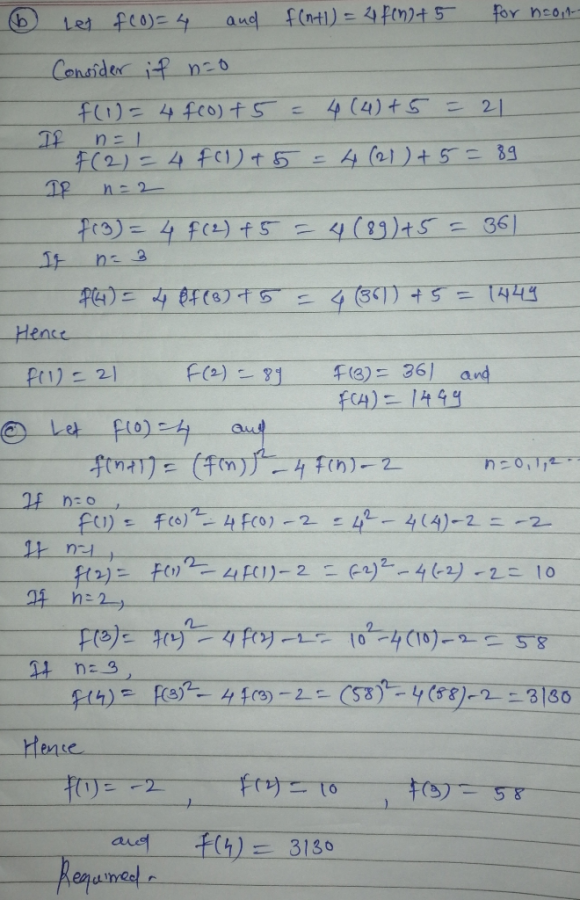 (b) Let f(0)=4 and f(n+1) = 4f(n)+5 for n=0,1-
Consider if n=0
f(1) = 4 f(0) + 5 = 4(4)+5 = 21
If n=1
f(2) = 4 f(1) + 5 = 4(21)+5 = 89
If n=2
f(3) = 4 f(2) + 5 = 4(89)+5 = 361
If n=3
f(4) = 4 f(3) + 5 = 4(361) + 5 = 1449
Hence
f(1) = 21 f(2) = 89 f(3) = 361 and
f(4) = 1449
(c) Let f(0)=4 and
f(n+1) = (f(n))² - 4 f(n) - 2 n=0,1,2--
If n=0,
f(1) = f(0)² - 4f(0) - 2 = 4² - 4(4) - 2 = -2
If n=1,
f(2) = f(1)² - 4f(1) - 2 = (-2)² - 4(-2) - 2 = 10
If n=2,
f(3) = f(2)² - 4f(2) - 2 = 10² - 4(10) - 2 = 58
If n=3,
f(4) = f(3)² - 4f(3) - 2 = (58)² - 4(58) - 2 = 3130
Hence
f(1) = -2, f(2) = 10, f(3) = 58
and f(4) = 3130
Required.